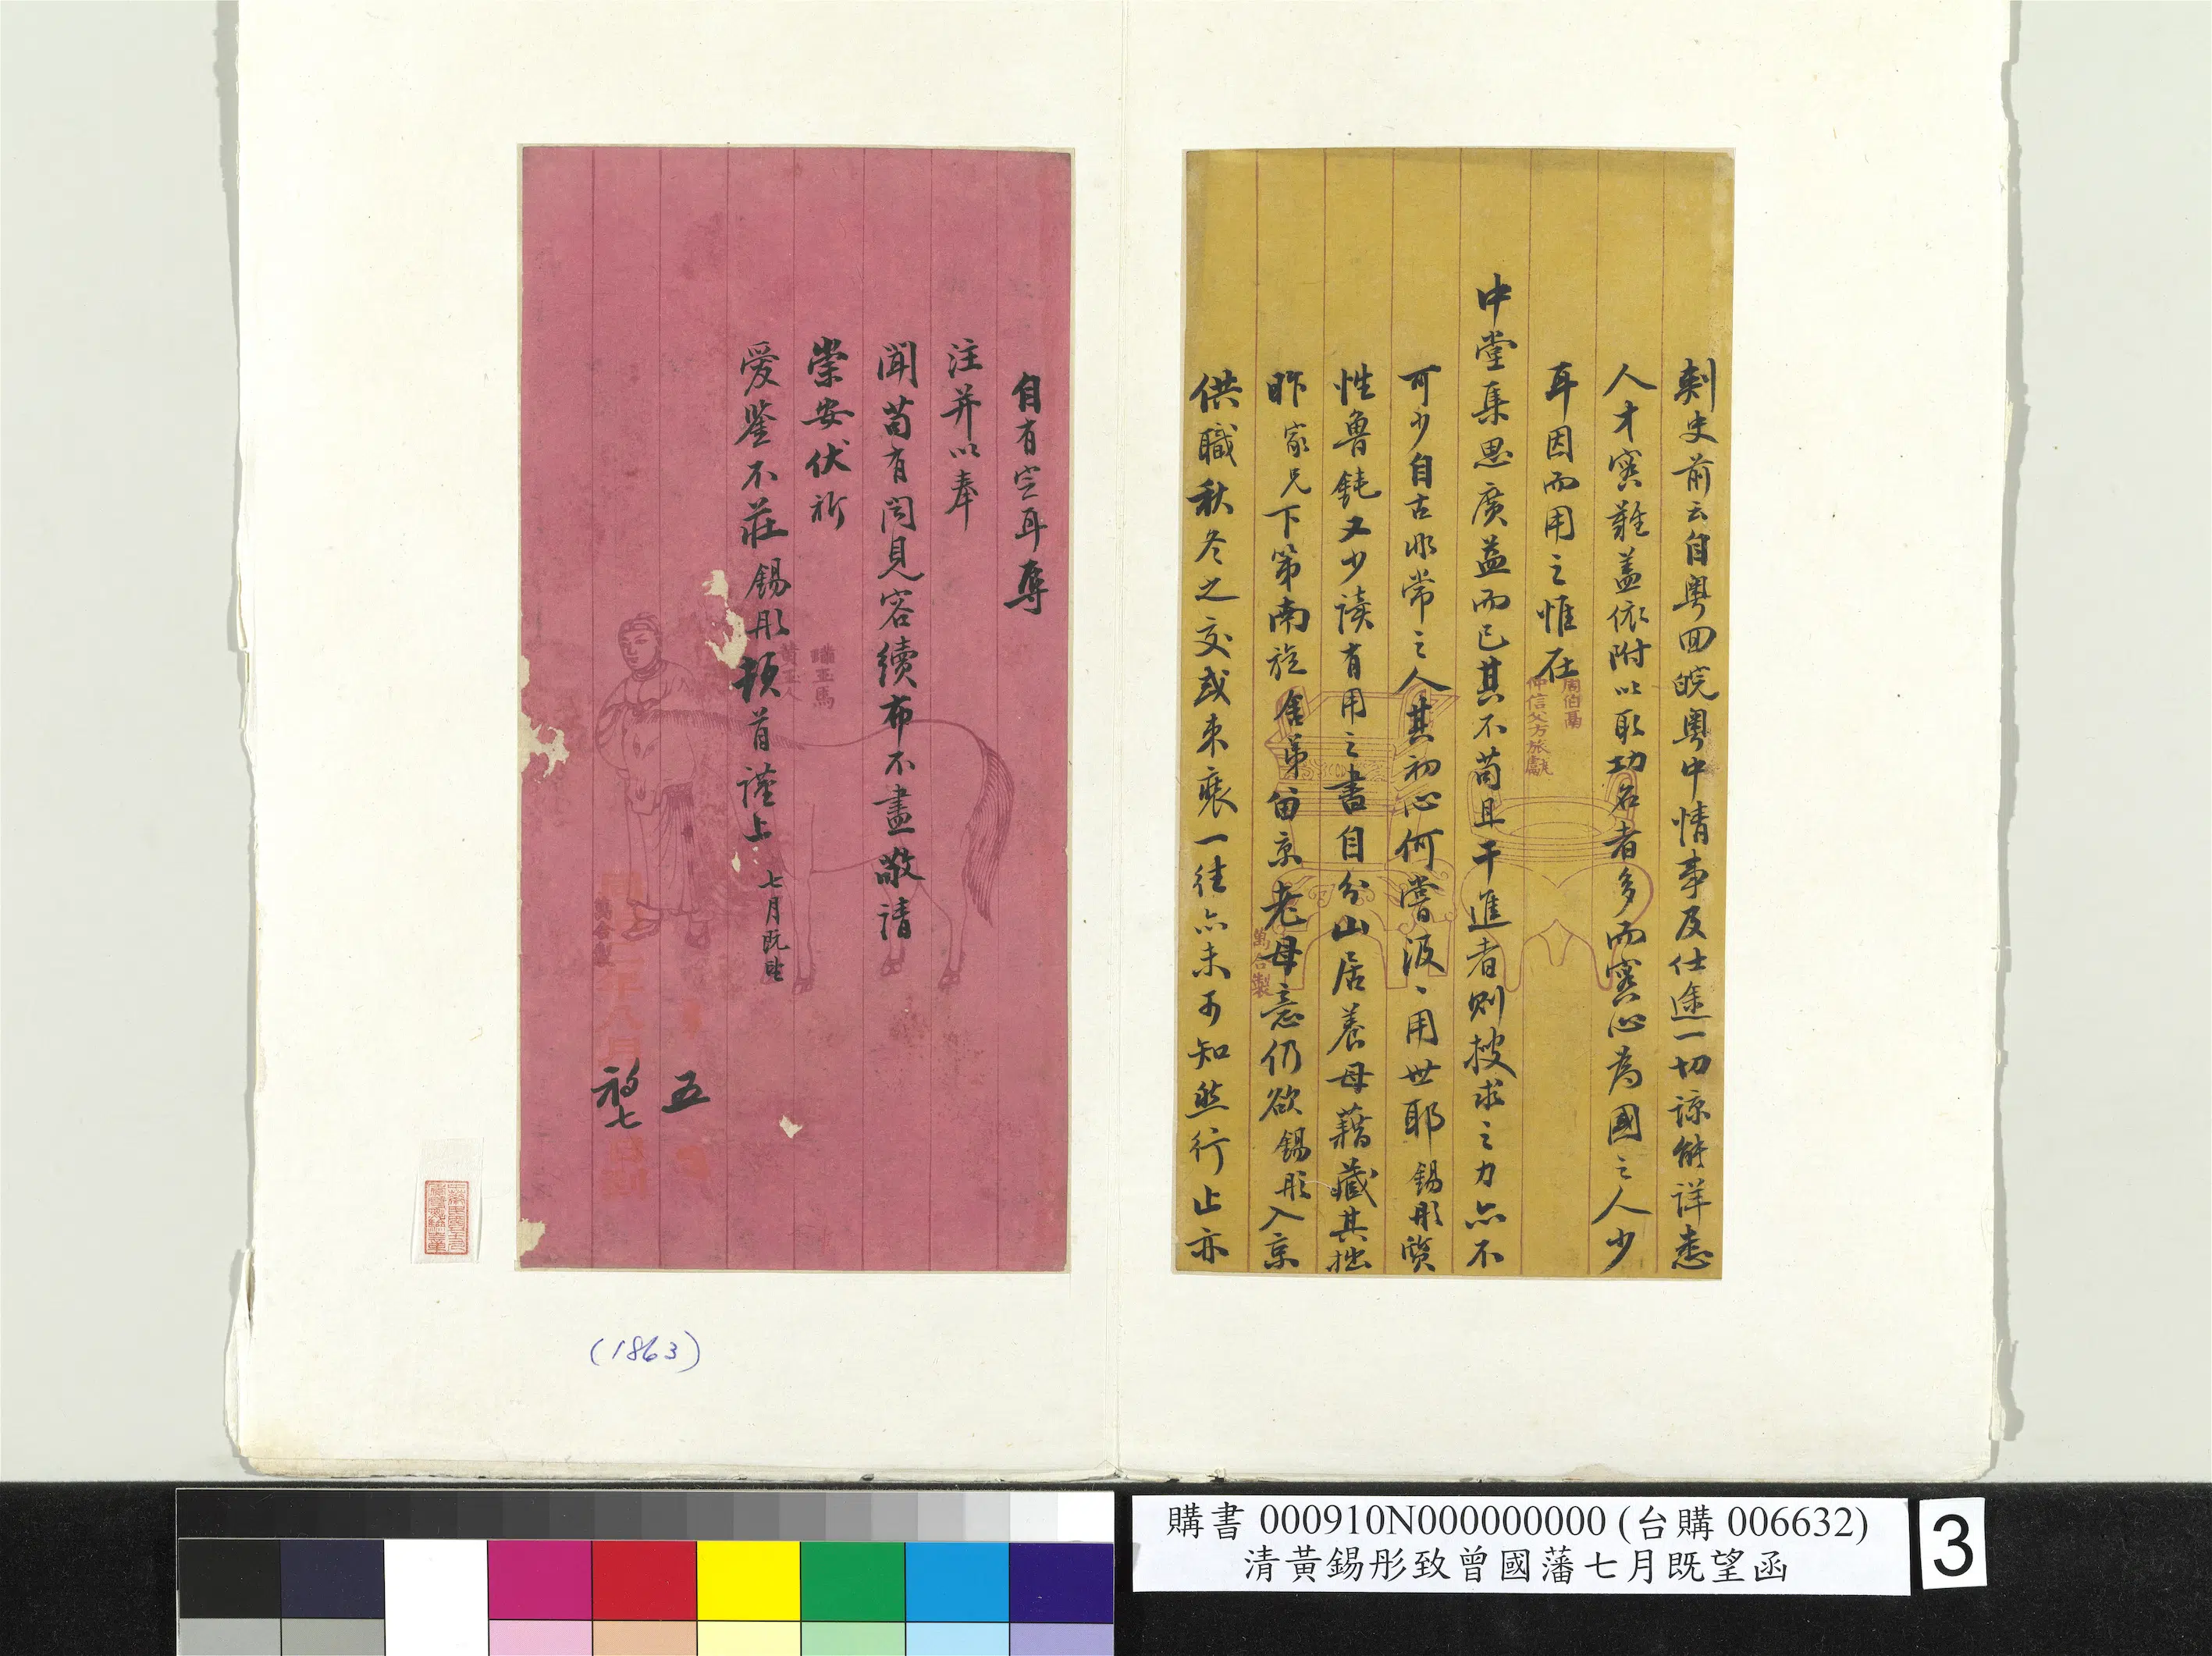 刺史前云自粵回皖粵中情事及仕途一切諒能詳悉
人才實難蓋依附以取功名者多而實心為國之人少
耳因而用之惟在
中堂集思廣益而已其不苟且干進者則搜求之力亦不
可少自古非常之人其初心何嘗汲、用世耶錫彤賢
性魯鈍又少讀有用之書自分山居養母藉藏其拙
昨家兄下第南旋舍弟留京老母意仍欲錫彤入京
供職秋冬之交或束裝一往亦未可知然行止亦
周伯鬲
仲信父方旅甗
萬合製
自有定耳辱
注并以奉
聞苟有聞見容續布不盡敬請
崇安伏祈
愛鑒不莊錫彤頓首謹上 七月既望
璊玉馬
黃玉人
萬合製
五
初七
(1863)
購書 000910N000000000 (台購 006632)
清黃錫彤致曾國藩七月既望函
3